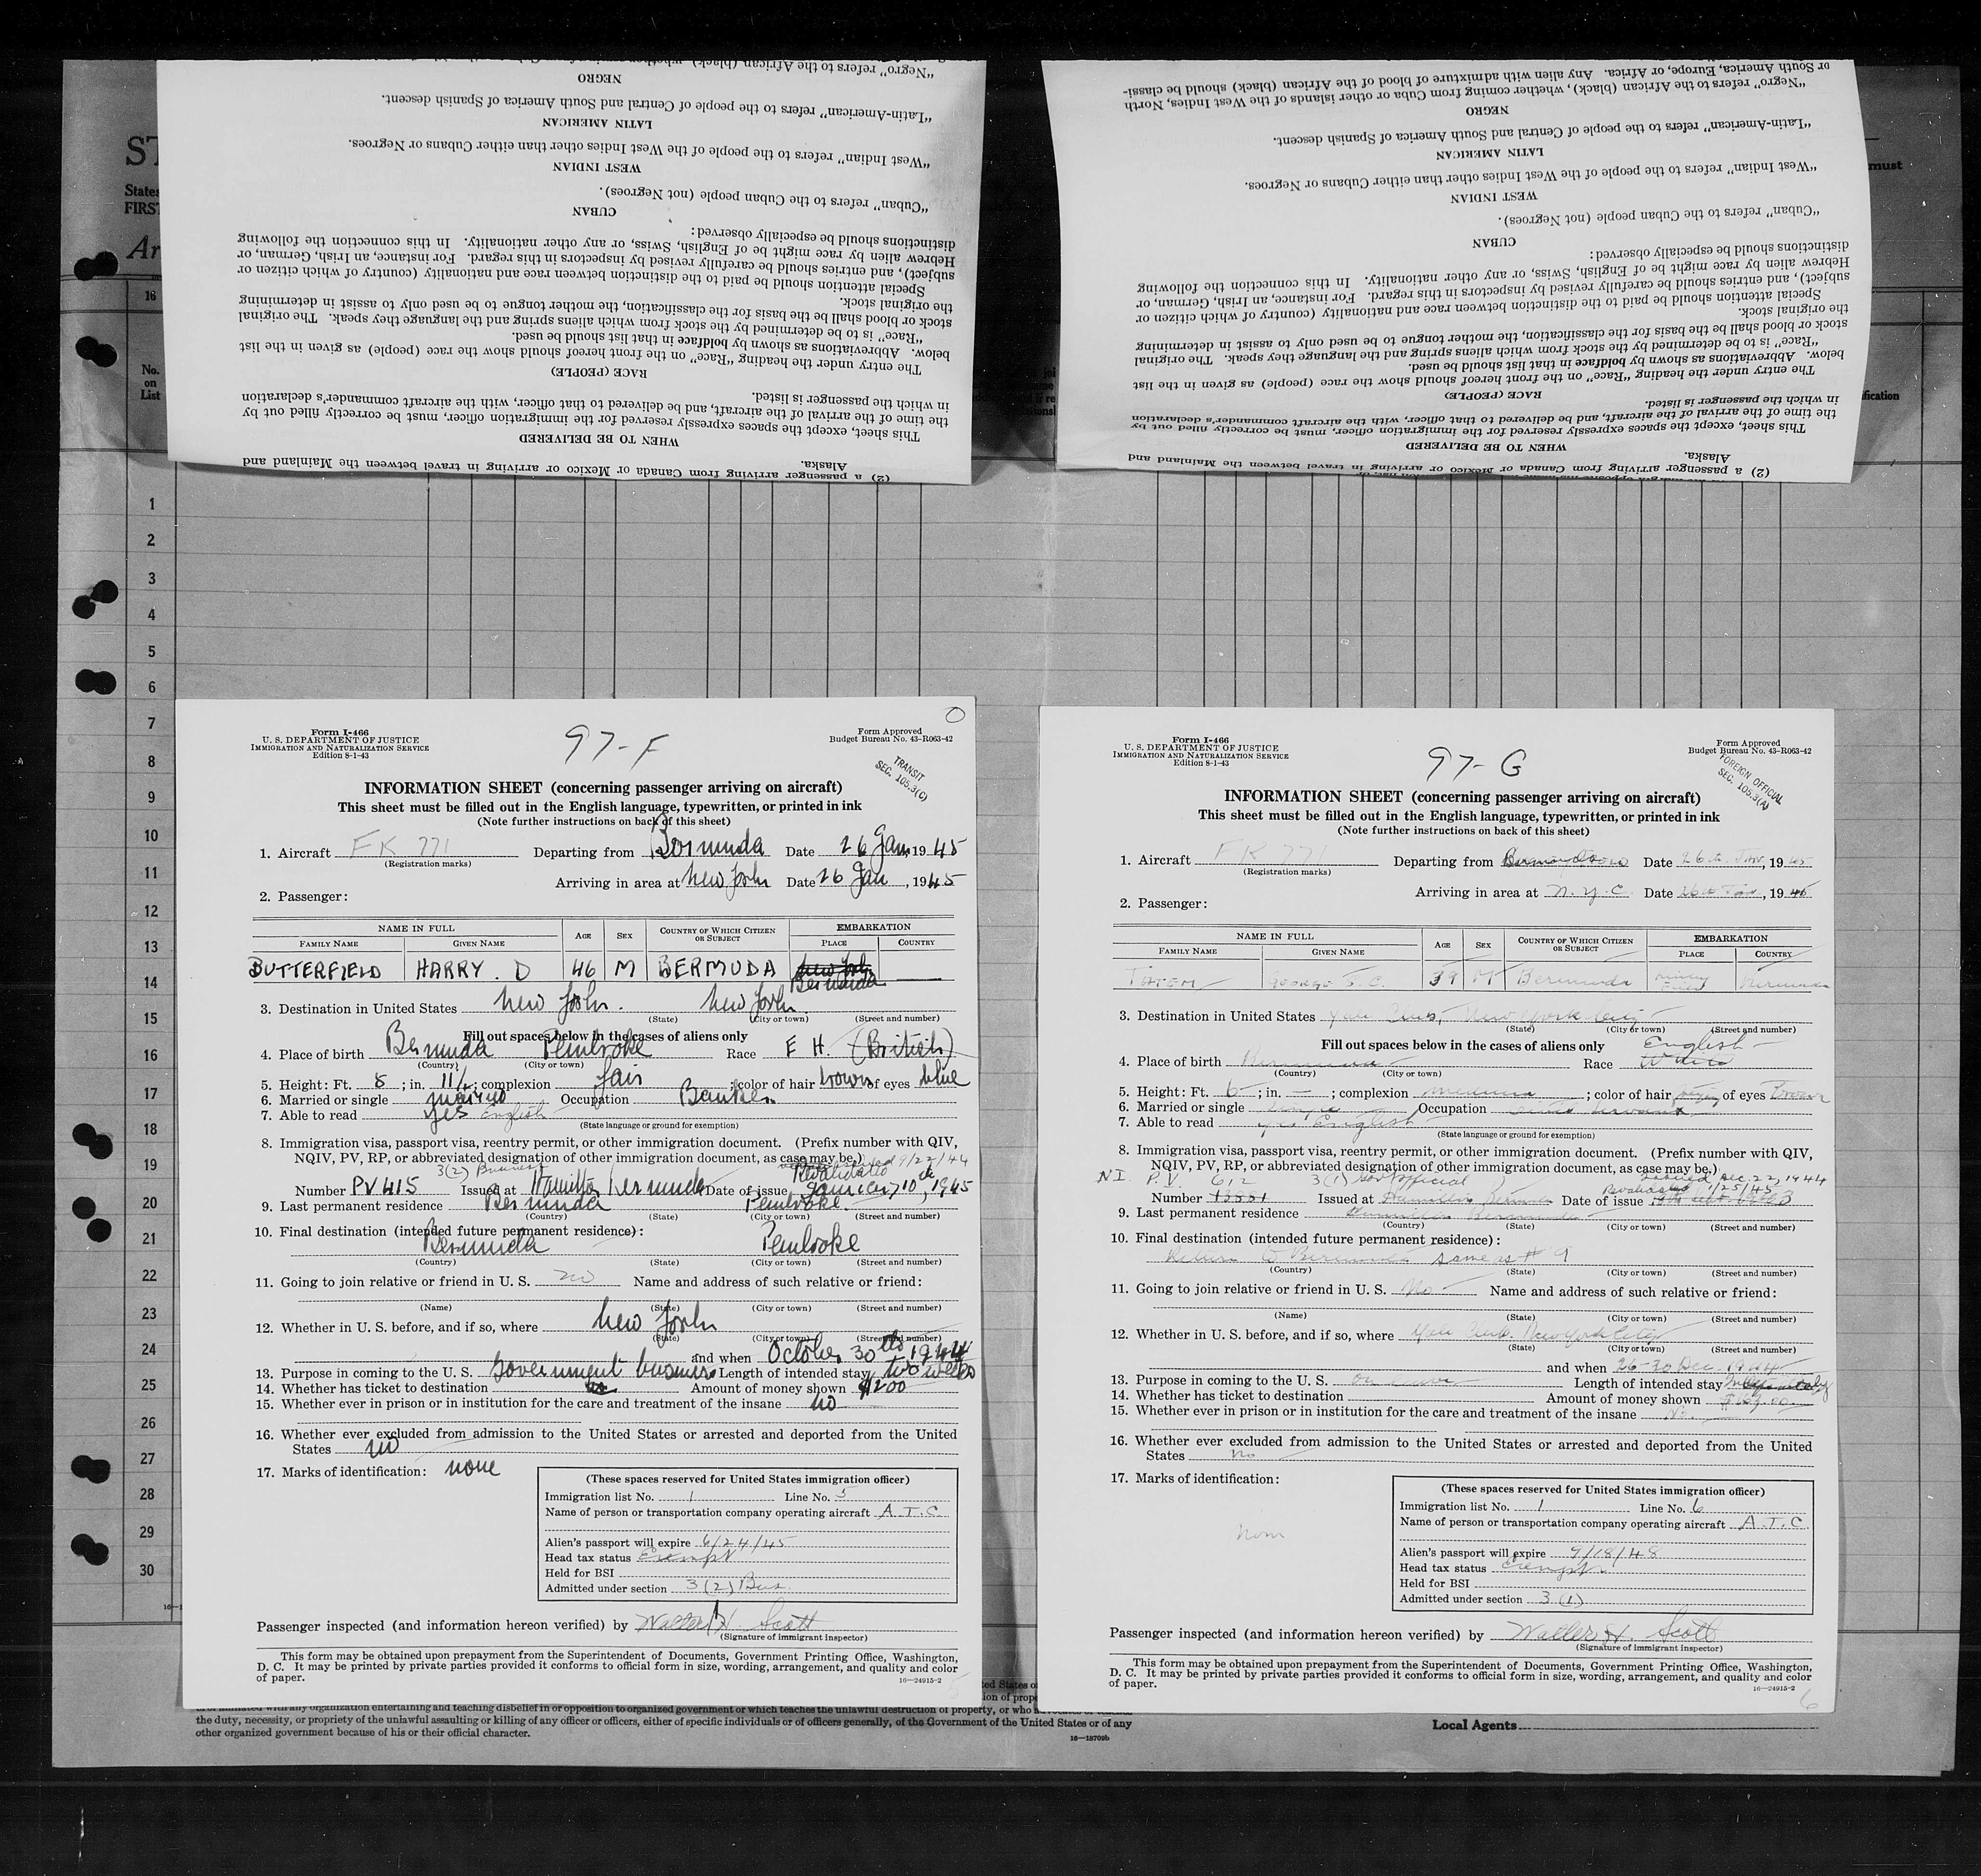 "Negro" refers to the African (black)
NEGRO
"Latin-American" refers to the people of Central and South America of Spanish descent.
LATIN AMERICAN
"West Indian" refers to the people of the West Indies other than either Cubans or Negroes.
WEST INDIAN
"Cuban" refers to the Cuban people (not Negroes).
CUBAN
distinctions should be especially observed:
Hebrew alien by race might be of English, Swiss, or any other nationality. In this connection the following
subject), and entries should be carefully revised by inspectors in this regard. For instance, an Irish, German, or
Special attention should be paid to the distinction between race and nationality (country of which citizen or
the original stock.
stock or blood shall be the basis for the classification, the mother tongue to be used only to assist in determining
"Race" is to be determined by the stock from which aliens spring and the language they speak. The original
below. Abbreviations as shown by boldface in that list should be used.
The entry under the heading "Race" on the front hereof should show the race (people) as given in the list
RACE (PEOPLE)
in which the passenger is listed.
the time of the arrival of the aircraft, and be delivered to that officer, with the aircraft commander's declaration
This sheet, except the spaces expressly reserved for the immigration officer, must be correctly filled out by
WHEN TO BE DELIVERED
Alaska.
(2) a passenger arriving from Canada or Mexico or arriving in travel between the Mainland and
or South America, Europe, or Africa. Any alien with admixture of blood of the African (black) should be classi-
"Negro" refers to the African (black), whether coming from Cuba or other islands of the West Indies, North
NEGRO
"Latin-American" refers to the people of Central and South America of Spanish descent.
LATIN AMERICAN
"West Indian" refers to the people of the West Indies other than either Cubans or Negroes.
WEST INDIAN
"Cuban" refers to the Cuban people (not Negroes).
CUBAN
distinctions should be especially observed:
Hebrew alien by race might be of English, Swiss, or any other nationality. In this connection the following
subject), and entries should be carefully revised by inspectors in this regard. For instance, an Irish, German, or
Special attention should be paid to the distinction between race and nationality (country of which citizen or
the original stock.
stock or blood shall be the basis for the classification, the mother tongue to be used only to assist in determining
"Race" is to be determined by the stock from which aliens spring and the language they speak. The original
below. Abbreviations as shown by boldface in that list should be used.
The entry under the heading "Race" on the front hereof should show the race (people) as given in the list
RACE (PEOPLE)
in which the passenger is listed.
the time of the arrival of the aircraft, and be delivered to that officer, with the aircraft commander's declaration
This sheet, except the spaces expressly reserved for the immigration officer, must be correctly filled out by
WHEN TO BE DELIVERED
Alaska.
(2) a passenger arriving from Canada or Mexico or arriving in travel between the Mainland and
ST
States
FIRST
Ar
must
16
No. on List
1
2
3
4
5
6
7
8
9
10
11
12
13
14
15
16
17
18
19
20
21
22
23
24
25
26
27
28
29
30
Form I-466
U. S. DEPARTMENT OF JUSTICE
IMMIGRATION AND NATURALIZATION SERVICE
Edition 8-1-43
97-F
Form Approved
Budget Bureau No. 43-R063-42
TRANSIT
SEC. 105.3(C)
INFORMATION SHEET (concerning passenger arriving on aircraft)
This sheet must be filled out in the English language, typewritten, or printed in ink
(Note further instructions on back of this sheet)
1. Aircraft FK 771 Departing from Bermuda Date 26 Jan, 1945
(Registration marks)
Arriving in area at New York Date 26 Jan, 1945
2. Passenger:
NAME IN FULL AGE SEX COUNTRY OF WHICH CITIZEN OR SUBJECT EMBARKATION
FAMILY NAME GIVEN NAME PLACE COUNTRY
BUTTERFIELD HARRY. D 46 M BERMUDA New York
Bermuda
3. Destination in United States New York. New York.
(State) (City or town) (Street and number)
Fill out spaces below in the cases of aliens only
4. Place of birth Bermuda Pembroke Race E H. (British)
(Country) (City or town)
5. Height: Ft. 5; in. 11½; complexion fair; color of hair brown of eyes blue
6. Married or single married Occupation Banker
7. Able to read yes English
(State language or ground for exemption)
8. Immigration visa, passport visa, reentry permit, or other immigration document. (Prefix number with QIV,
NQIV, PV, RP, or abbreviated designation of other immigration document, as case may be.)
9/22/44
3(2) Business Revalidated
Number PV 415 Issued at Hamilton Bermuda Date of issue January 10th, 1945
9. Last permanent residence Bermuda Pembroke.
(Country) (State) (City or town) (Street and number)
10. Final destination (intended future permanent residence):
Bermuda Pembroke
(Country) (State) (City or town) (Street and number)
11. Going to join relative or friend in U. S. no Name and address of such relative or friend:
(Name) (State) (City or town) (Street and number)
12. Whether in U. S. before, and if so, where New York
(State) (City or town) (Street and number)
and when October 30th 1944
13. Purpose in coming to the U. S. Government business Length of intended stay two weeks
14. Whether has ticket to destination Amount of money shown $200
15. Whether ever in prison or in institution for the care and treatment of the insane no
16. Whether ever excluded from admission to the United States or arrested and deported from the United
States no
17. Marks of identification: none
(These spaces reserved for United States immigration officer)
Immigration list No. 1 Line No. 5
Name of person or transportation company operating aircraft A.T.C
Alien's passport will expire 6/24/45
Head tax status Exempt
Held for BSI
Admitted under section 3(2) Bus.
Passenger inspected (and information hereon verified) by Walter H. Scott
(Signature of immigrant inspector)
This form may be obtained upon prepayment from the Superintendent of Documents, Government Printing Office, Washington,
D. C. It may be printed by private parties provided it conforms to official form in size, wording, arrangement, and quality and color
of paper.
16—24915-2
5
Form I-466
U. S. DEPARTMENT OF JUSTICE
IMMIGRATION AND NATURALIZATION SERVICE
Edition 8-1-43
97-G
Form Approved
Budget Bureau No. 43-R063-42
FOREIGN OFFICIAL
SEC. 105.3(A)
INFORMATION SHEET (concerning passenger arriving on aircraft)
This sheet must be filled out in the English language, typewritten, or printed in ink
(Note further instructions on back of this sheet)
1. Aircraft FK 771 Departing from Date 26th Jan, 1945
(Registration marks)
Arriving in area at N.Y.C. Date 26th Jan, 1945
2. Passenger:
NAME IN FULL AGE SEX COUNTRY OF WHICH CITIZEN OR SUBJECT EMBARKATION
FAMILY NAME GIVEN NAME PLACE COUNTRY
TATEM George S. C. 39 M Bermuda Kindley Field Bermuda
3. Destination in United States Yale Club, New York City
(State) (City or town) (Street and number)
Fill out spaces below in the cases of aliens only
English
4. Place of birth Bermuda Race White
(Country) (City or town)
5. Height: Ft. 6; in. —; complexion medium; color of hair of eyes Brown
6. Married or single Single Occupation Civil Servant
7. Able to read yes English
(State language or ground for exemption)
8. Immigration visa, passport visa, reentry permit, or other immigration document. (Prefix number with QIV,
NQIV, PV, RP, or abbreviated designation of other immigration document, as case may be.)
Issued Dec. 22, 1944
NI. P.V. 612 3(1) Gov official Revalidated 1/25/45
Number 13551 Issued at Hamilton Bermuda Date of issue
9. Last permanent residence Hamilton Bermuda
(Country) (State) (City or town) (Street and number)
10. Final destination (intended future permanent residence):
Return to Bermuda same as # 9
(Country) (State) (City or town) (Street and number)
11. Going to join relative or friend in U. S. No Name and address of such relative or friend:
(Name) (State) (City or town) (Street and number)
12. Whether in U. S. before, and if so, where Yale Club, New York City
(State) (City or town) (Street and number)
and when 26-30 Dec. 1944
13. Purpose in coming to the U. S. on leave Length of intended stay
14. Whether has ticket to destination Amount of money shown
15. Whether ever in prison or in institution for the care and treatment of the insane No
16. Whether ever excluded from admission to the United States or arrested and deported from the United
States No
17. Marks of identification:
None
(These spaces reserved for United States immigration officer)
Immigration list No. 1 Line No. 6
Name of person or transportation company operating aircraft A.T.C.
Alien's passport will expire 9/18/48
Head tax status Exempt
Held for BSI
Admitted under section 3(1)
Passenger inspected (and information hereon verified) by Walter H. Scott
(Signature of immigrant inspector)
This form may be obtained upon prepayment from the Superintendent of Documents, Government Printing Office, Washington,
D. C. It may be printed by private parties provided it conforms to official form in size, wording, arrangement, and quality and color
of paper.
16—24915-2
6
with any organization entertaining and teaching disbelief in or opposition to organized government or which teaches the unlawful destruction of property, or who
the duty, necessity, or propriety of the unlawful assaulting or killing of any officer or officers, either of specific individuals or of officers generally, of the Government of the United States or of any
other organized government because of his or their official character.
16—18709b
Local Agents